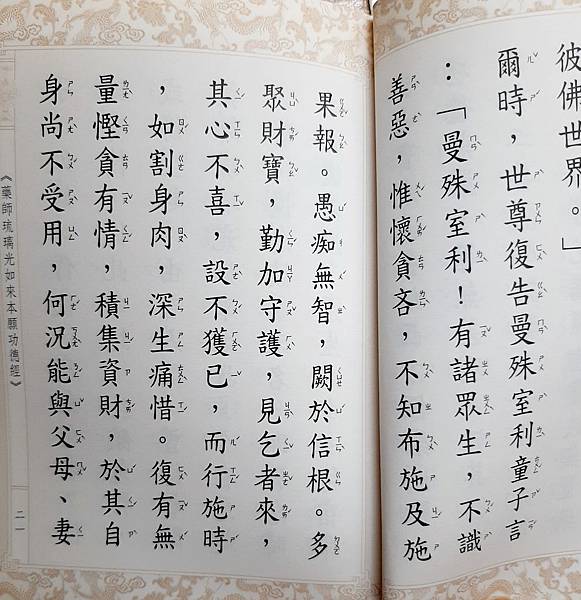 彼佛世界。」
爾時，世尊復告曼殊室利童子言
：「曼殊室利！有諸眾生，不識
善惡，惟懷貪吝，不知布施及施
果報。愚痴無智，闕於信根。多
聚財寶，勤加守護，見乞者來，
其心不喜，設不獲已，而行施時
，如割身肉，深生痛惜。復有無
量慳貪有情，積集資財，於其自
身尚不受用，何況能與父母、妻
《藥師琉璃光如來本願功德經》
二一